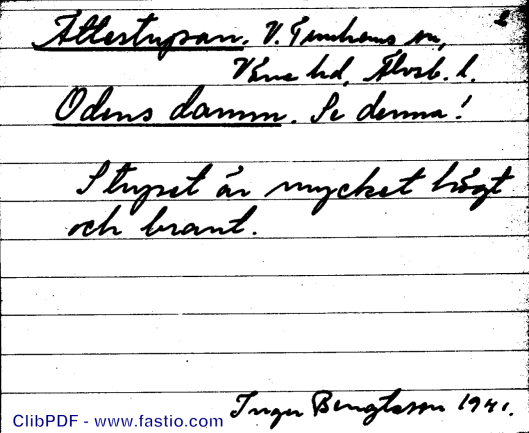 Ättestupan. V. Tunhems sn,
Väne hd, Älvsb. l.
Odens damm. Se denna!
Stupet är mycket högt
och brant.
Inger Bengtsson 1941.
ClibPDF - www.fastio.com